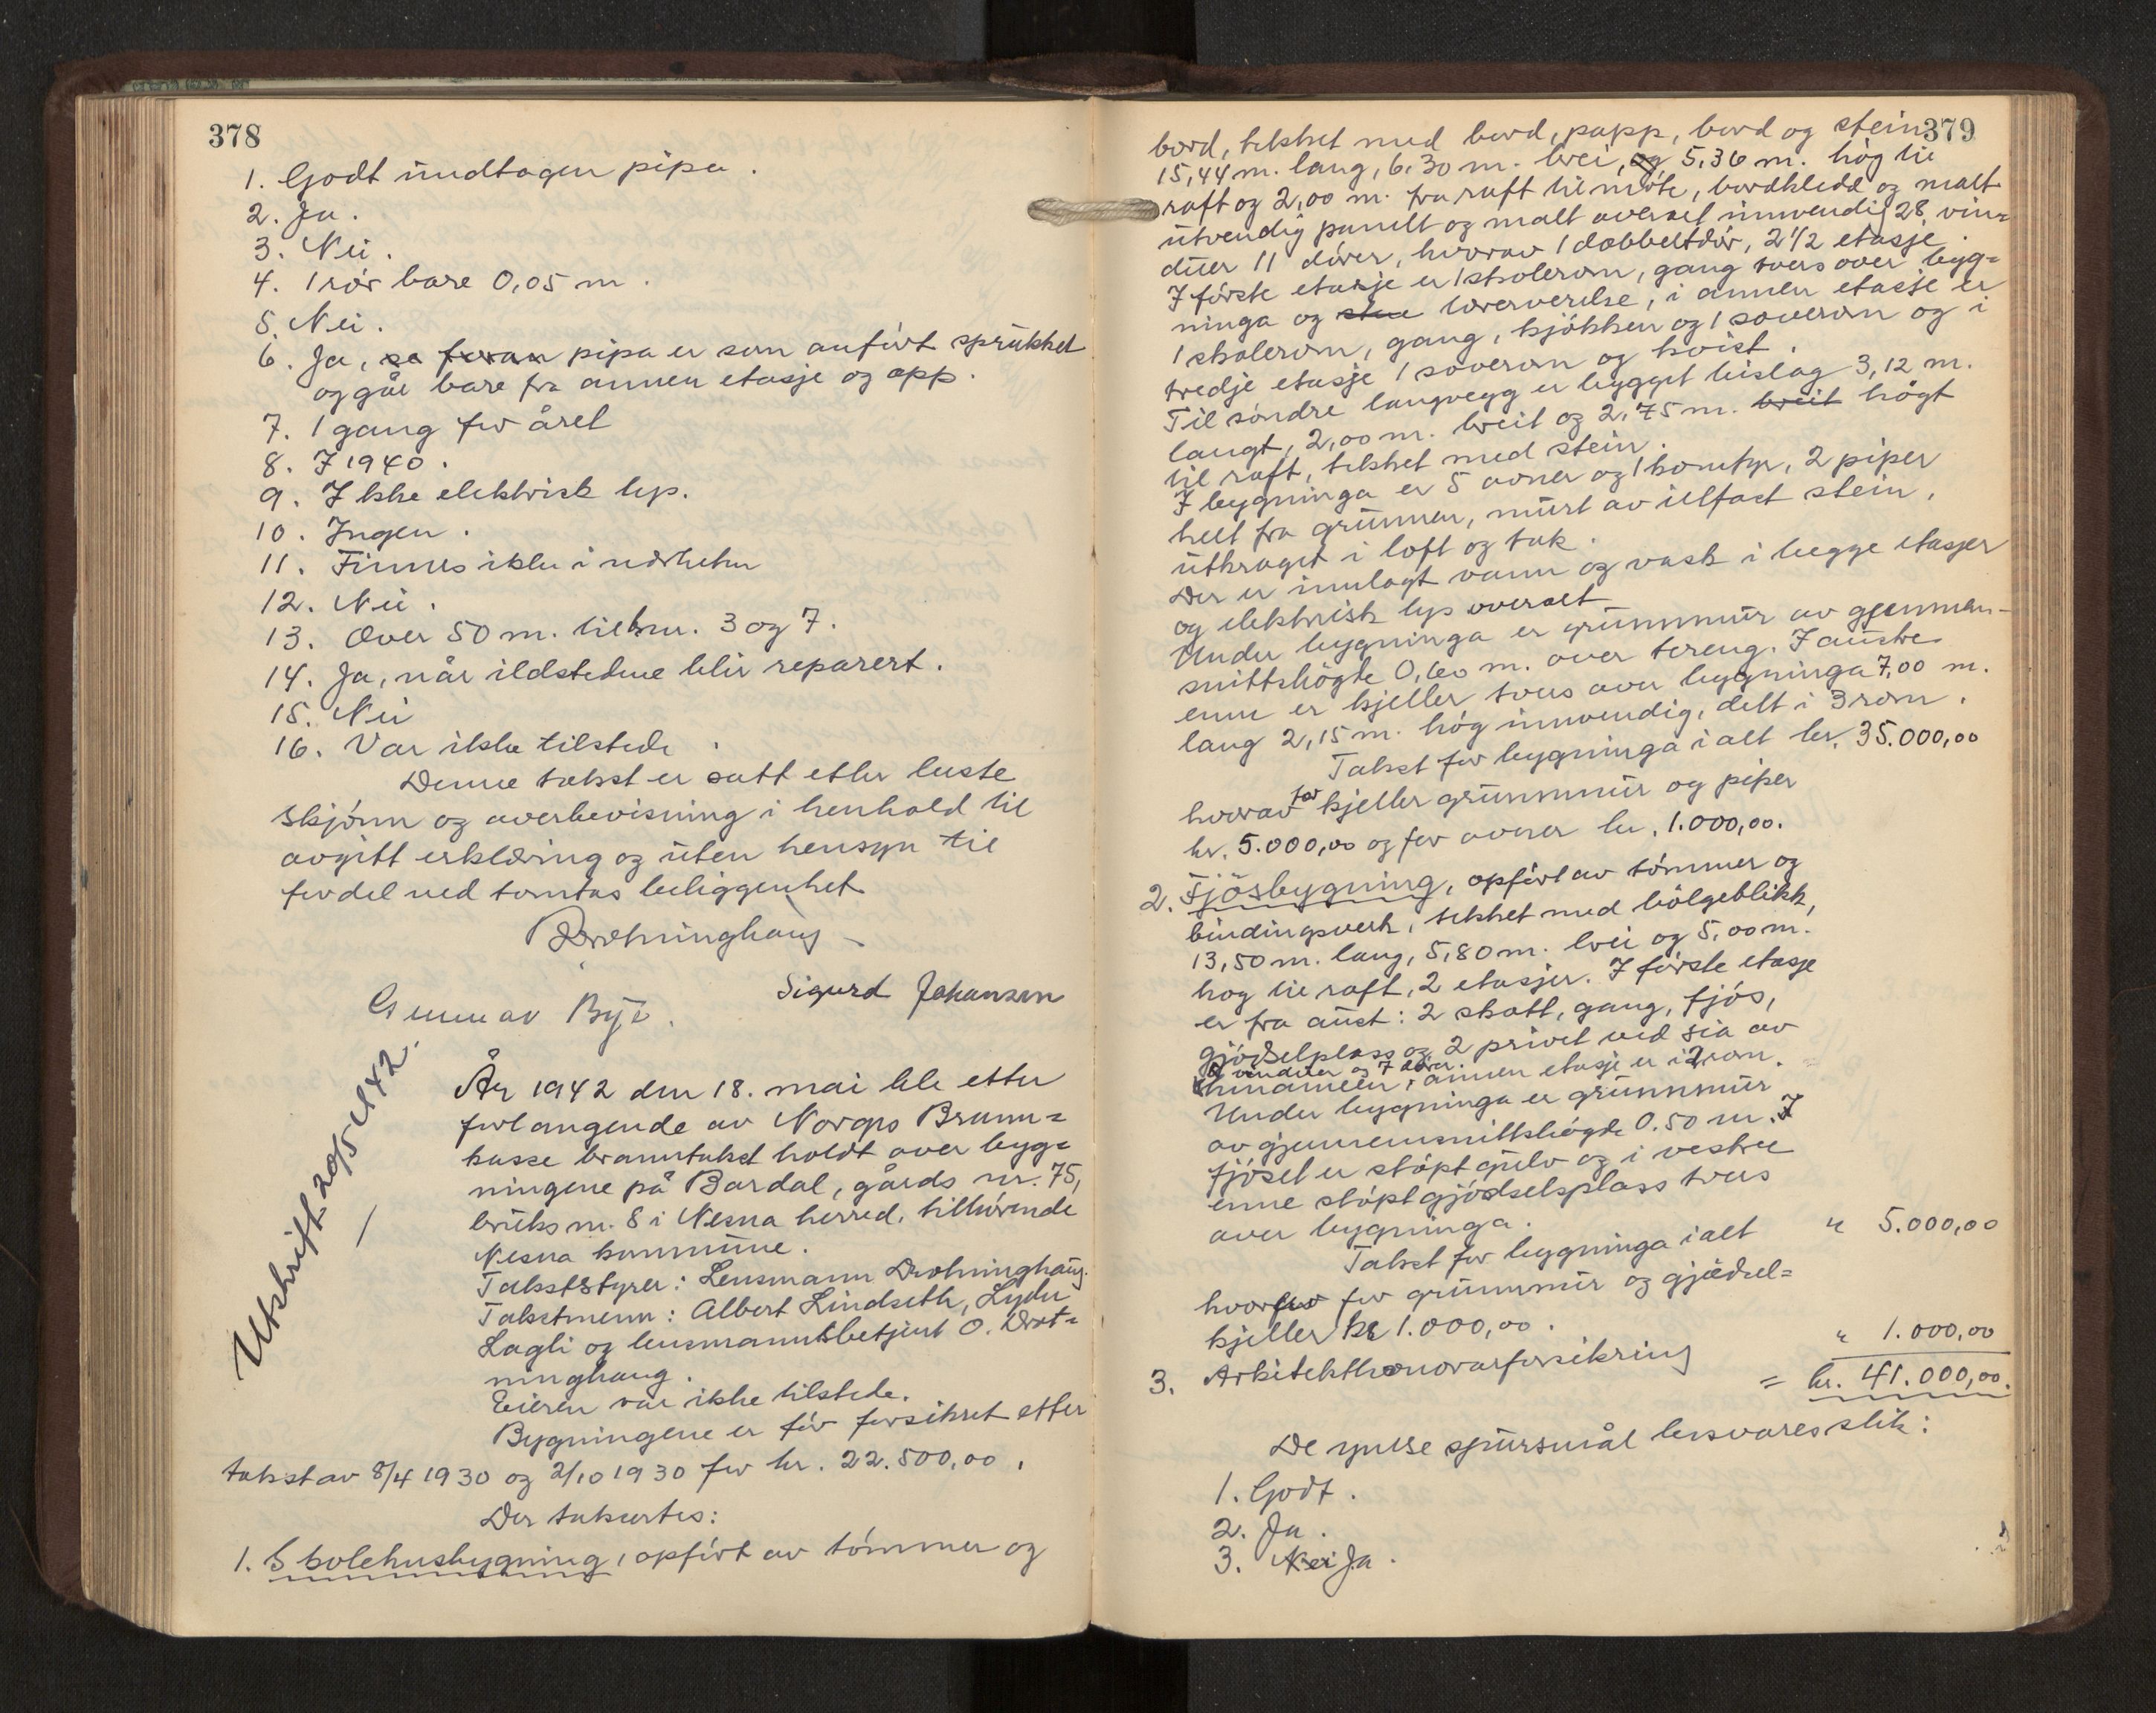 378
1. Godt undtagen pipa.
2. Ja.
3. Nei.
4. 1 rör bare 0,05 m.
5. Nei.
6. Ja, se foran pipa er som anfört sprukket
og går bare fra annen etasje og opp.
7. 1 gang for året
8. I 1940.
9. Ikke elektrisk lys.
10. Ingen.
11. Finnes ikke i nærheten
12. Nei.
13. Over 50 m. til bnr. 3 og 7.
14. Ja, når ildstedene blir reparert.
15. Nei
16. Var ikke tilstede.
Denne takst er satt etter beste
skjönn og overbevisning i henhold til
avgitt erklæring og uten hensyn til
fordel ved tomtas beliggenhet
Drotninghaug
Sigurd Johansen
Gunnar Bye.
Utskrift 20/5 1942.
År 1942 den 18. mai ble etter
forlangende av Norges Brann=
kasse branntakst holdt over byg=
ningene på Bardal, gårds nr. 75,
bruks nr. 8 i Nesna herred, tilhörende
Nesna kommune.
Takststyrer: Lensmann Drotninghaug.
Takstmenn: Albert Lindseth, Lyder
Lagli og lensmannsbetjent O. Drot=
ninghaug.
Eieren var ikke tilstede.
Bygningene er för forsikret etter
takst av 8/4 1930 og 2/10 1930 for kr. 22.500,00.
Der taksertes:
1. Skolehusbygning, opfört av tömmer og
379
bord, tekket med bord, papp, bord og stein
15,44 m. lang, 6,30 m. brei, og 5,36 m. hög til
raft og 2,00 m. fra raft til möte, bordkledd og malt
utvendig panelt og malt overalt innvendig 28 vin=
duer 11 dörer, hvorav 1 dobbeltdör, 2 1/2 etasje.
I förste etasje er 1 skolerom, gang tvers over byg=
ninga og stue lærerverelse, i annen etasje er
1 skolerom, gang, kjökken og 1 soverom og i
tredje etasje 1 soverom og kvist.
Til söndre langvegg er bygget bislag 3,12 m.
langt, 2,00 m. breit og 2,75 m. breit högt
til raft, tekket med stein.
I bygninga er 5 ovner og 1 komfyr, 2 piper
helt fra grunnen, murt av ildfast stein,
utkraget i loft og tak.
Der er innlagt vann og vask i begge etasjer
og elektrisk lys overalt
Under bygninga er grunnmur av gjennom-
snittshögde 0,60 m. over tereng. I austre
enne er kjeller tvers over bygninga 7,00 m.
lang 2,15 m. hög innvendig, delt i 3 rom.
Takst for bygninga i alt kr. 35.000,00
hvorav for kjeller grunnmur og piper
kr. 5.000,00 og for ovner kr. 1.000,00.
2. Fjösbygning, opfört av tömmer og
bindingsverk, tekket med bölgeblikk,
13,50 m. lang, 5,80 m. brei og 5,00 m.
hög til raft, 2 etasjer. I förste etasje
er fra aust: 2 skott, gang, fjös,
gjödselplass og 2 privet ved sia av
vinduer og 7 dörer.
annen etasje er i 2 rom.
Under bygninga er grunnmur
av gjennemsnittshögde 0.50 m. I
fjöset er stöpt gulv og i vestre
enne stöpt gjödselsplass tvers
over bygninga.
Takst for bygninga i alt " 5.000,00
hvorfor for grunnmur og gjödsel=
kjeller kr 1.000,00.
3. Arkitekthonorarforsikring " 1.000,00
= kr. 41.000,00.
De ymse spursmål besvares slik:
1. Godt.
2. Ja.
3. Nei Ja.